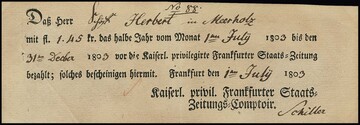 No 88.
Daß Herr Herbert in Marholz
mit fl. 1.45 kr. das halbe Jahr vom Monat 1ten July 1803 bis den
31ten Decber 1803 vor die Kaiserl. privilegirte Frankfurter Staats-Zeitung
bezahlt; solches bescheinigen hiermit. Frankfurt den 1ten July 1803
Kaiserl. privil. Frankfurter Staats-
Zeitungs-Comptoir.
Schiller